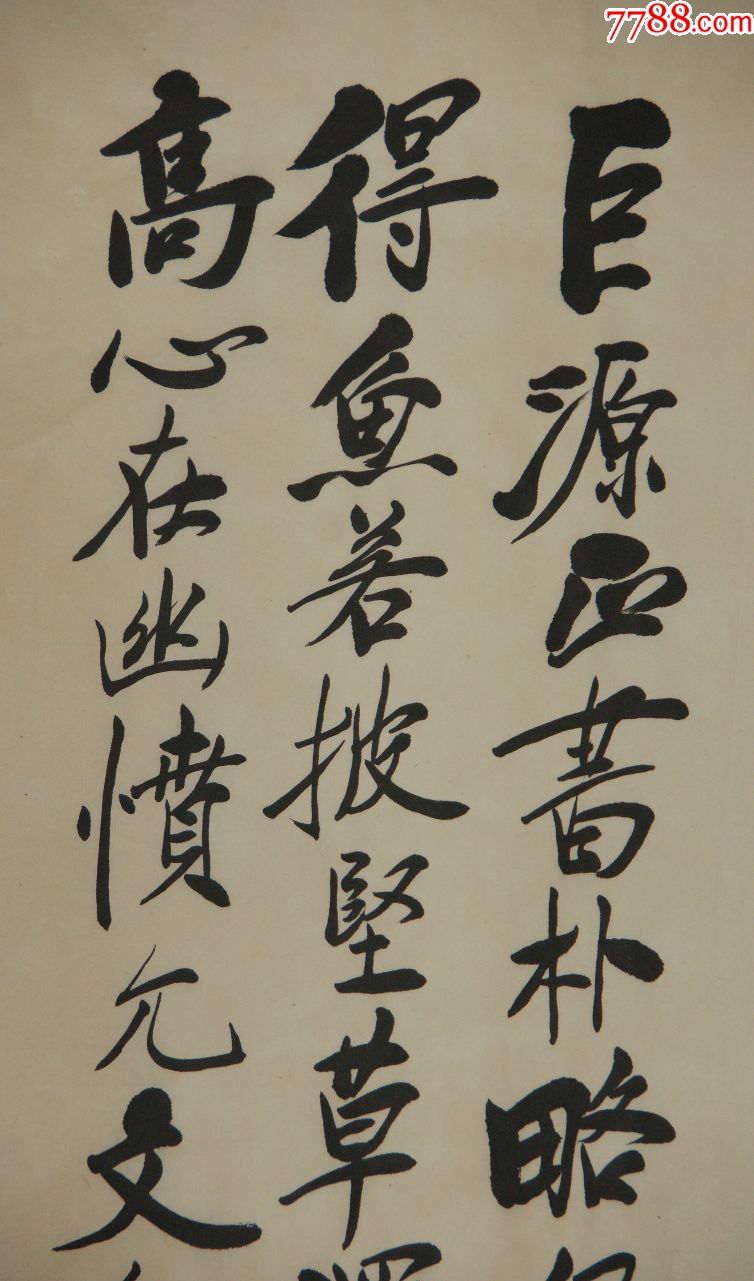 7788.com
巨源正書朴略
得魚若披堅草
高心在幽憤允文